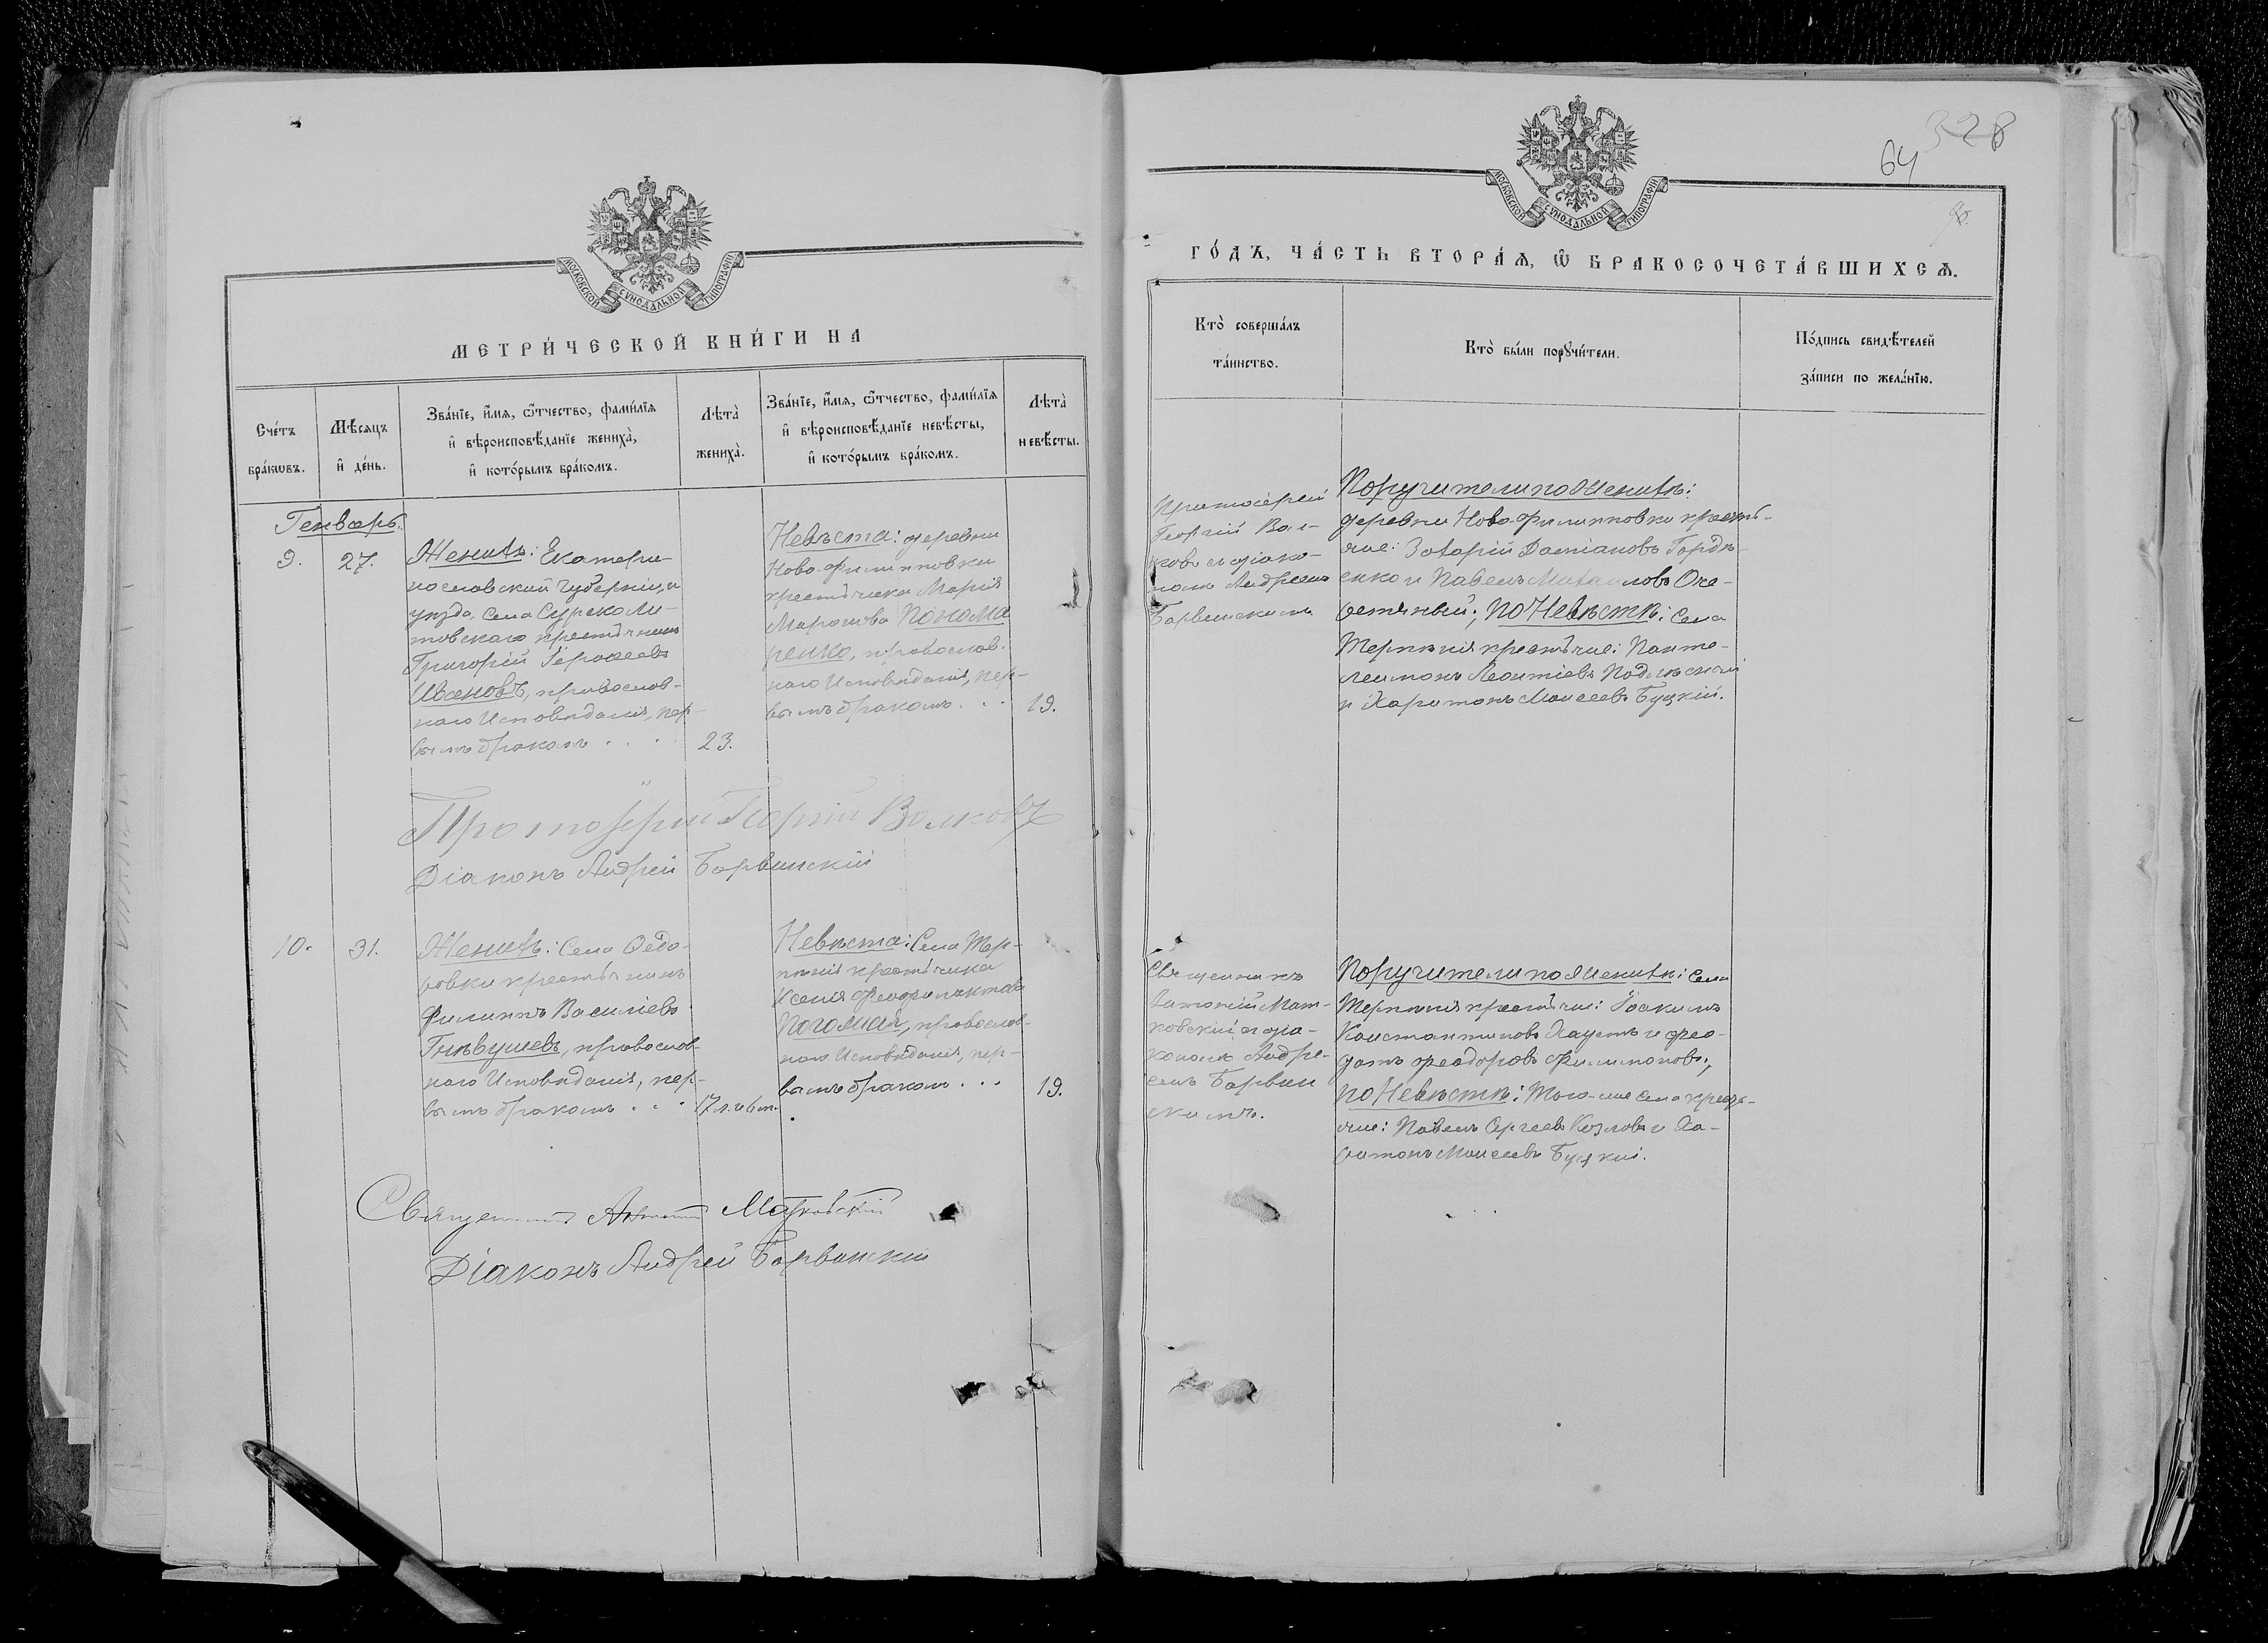 МОСКОВСКОЙ СѴНОДАЛЬНОЙ ТИПОГРАФІИ
МЕТРИ́ЧЕСКОЙ КНИ́ГИ НА
Сче́тъ
бра́кѡвъ.
Мѣ́сѧцъ
и҆ де́нь.
Зва́нїе, и҆́мѧ, ѻ҆́тчество, фами́лїѧ
и҆ вѣроисповѣ́данїе жениха̀,
и҆ кото́рымъ бра́комъ.
Лѣта̀
жениха̀.
Зва́нїе, и҆́мѧ, ѻ҆́тчество, фами́лїѧ
и҆ вѣроисповѣ́данїе невѣ́сты,
и҆ кото́рымъ бра́комъ.
Лѣта̀
невѣ́сты.
Генварь.
9.
27.
Женихъ: Екатери-
нославской Губерніи, и
уѣзда, села Сурско Ли-
товскаго крестьянинъ
Григорій Герасеевъ
Ивановъ, православ-
наго Исповѣданія, пер-
вымъ бракомъ . . .
23.
Невѣста: деревни
Ново-филипповки
крестьянка Марія
Маркова Понома
ренко, православ.
наго Исповѣданія, пер-
вымъ бракомъ . . .
19.
Протоіерей Георгій Волковъ
Діаконъ Андрей Барвинскій
10.
31.
Женихъ: Села Ѳедо-
ровки крестьянинъ
Филиппъ Василіевъ
Гнѣвушевъ, православ-
наго Исповѣданія, пер-
вымъ бракомъ . . .
17 л. и 6 м.
Невѣста: Села Тер-
пѣнія крестьянка
Ксенія Феофилактова
Погожая, православ-
наго Исповѣданія, пер-
вымъ бракомъ . . .
19.
Священникъ Антоній Матковскій
Діаконъ Андрей Барвинскій
328
64
МОСКОВСКОЙ СѴНОДАЛЬНОЙ ТИПОГРАФІИ
ГО́ДЪ, ЧА́СТЬ ВТОРА́Ѧ, Ѽ БРАКОСОЧЕТА́ВШИХСѦ.
Кто̀ соверша́лъ
та́инство.
Кто̀ бы́ли порꙋчи́тели.
По́дпись свидѣ́телей
за́писи по жела́нїю.
Протоіерей
Георгій Вол-
ковъ съ діако-
номъ Андреемъ
Барвинскимъ
Поручители по Женихѣ:
деревни Ново-филипповки кресть-
яне: Захарій Даміановъ Горде-
енко и Павелъ Михаиловъ Оче-
ретяный; по Невѣстѣ: Села
Терпѣнія крестьяне: Панте-
леимонъ Леонтіевъ Подлѣсный
и Харитонъ Моисеевъ Буцкій.
Священникъ
Антоній Мат-
ковскій съ діа-
кономъ Андре-
емъ Барвин
скимъ.
Поручители по Женихѣ: Села
Терпѣнія крестьяне: Іоакимъ
Константиновъ Хаустъ и Фео-
дотъ Феодоровъ Филимоновъ;
по Невѣстѣ: Того-же села кресть-
яне: Павелъ Сергеевъ Козловъ и Ха-
ритонъ Моисеевъ Буцкій.